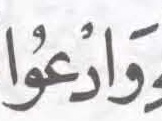 وَادْعُوا